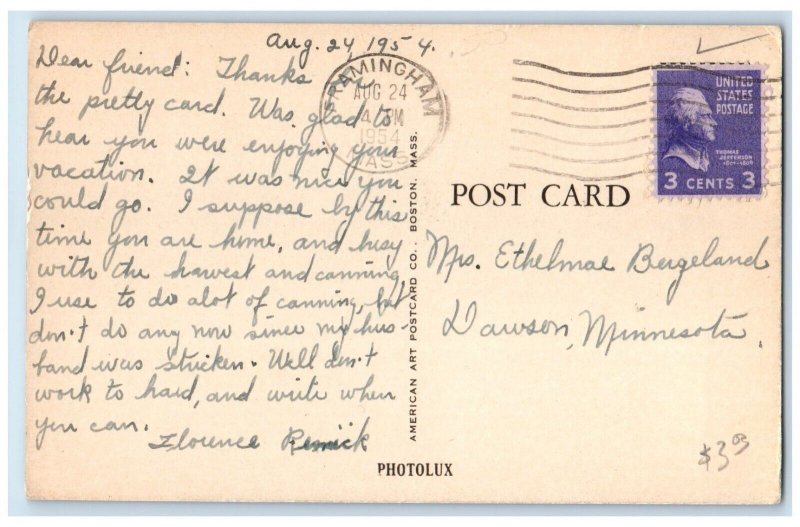 Aug. 24, 1954.
Dear friend: Thanks for
the pretty card. Was glad to
hear you were enjoying your
vacation. It was nice you
could go. I suppose by this
time you are home, and busy
with the harvest and canning,
I use to do alot of canning, but
don't do any now since my hus-
band was stricken. Well don't
work to hard, and write when
you can.
Florence Remick
FRAMINGHAM
AUG 24
4 PM
1954
MASS.
UNITED
STATES
POSTAGE
THOMAS
JEFFERSON
1801-1809
3 CENTS 3
POST CARD
Mrs. Ethelmae Bergeland
Dawson, Minnesota.
AMERICAN ART POSTCARD CO., BOSTON, MASS.
PHOTOLUX